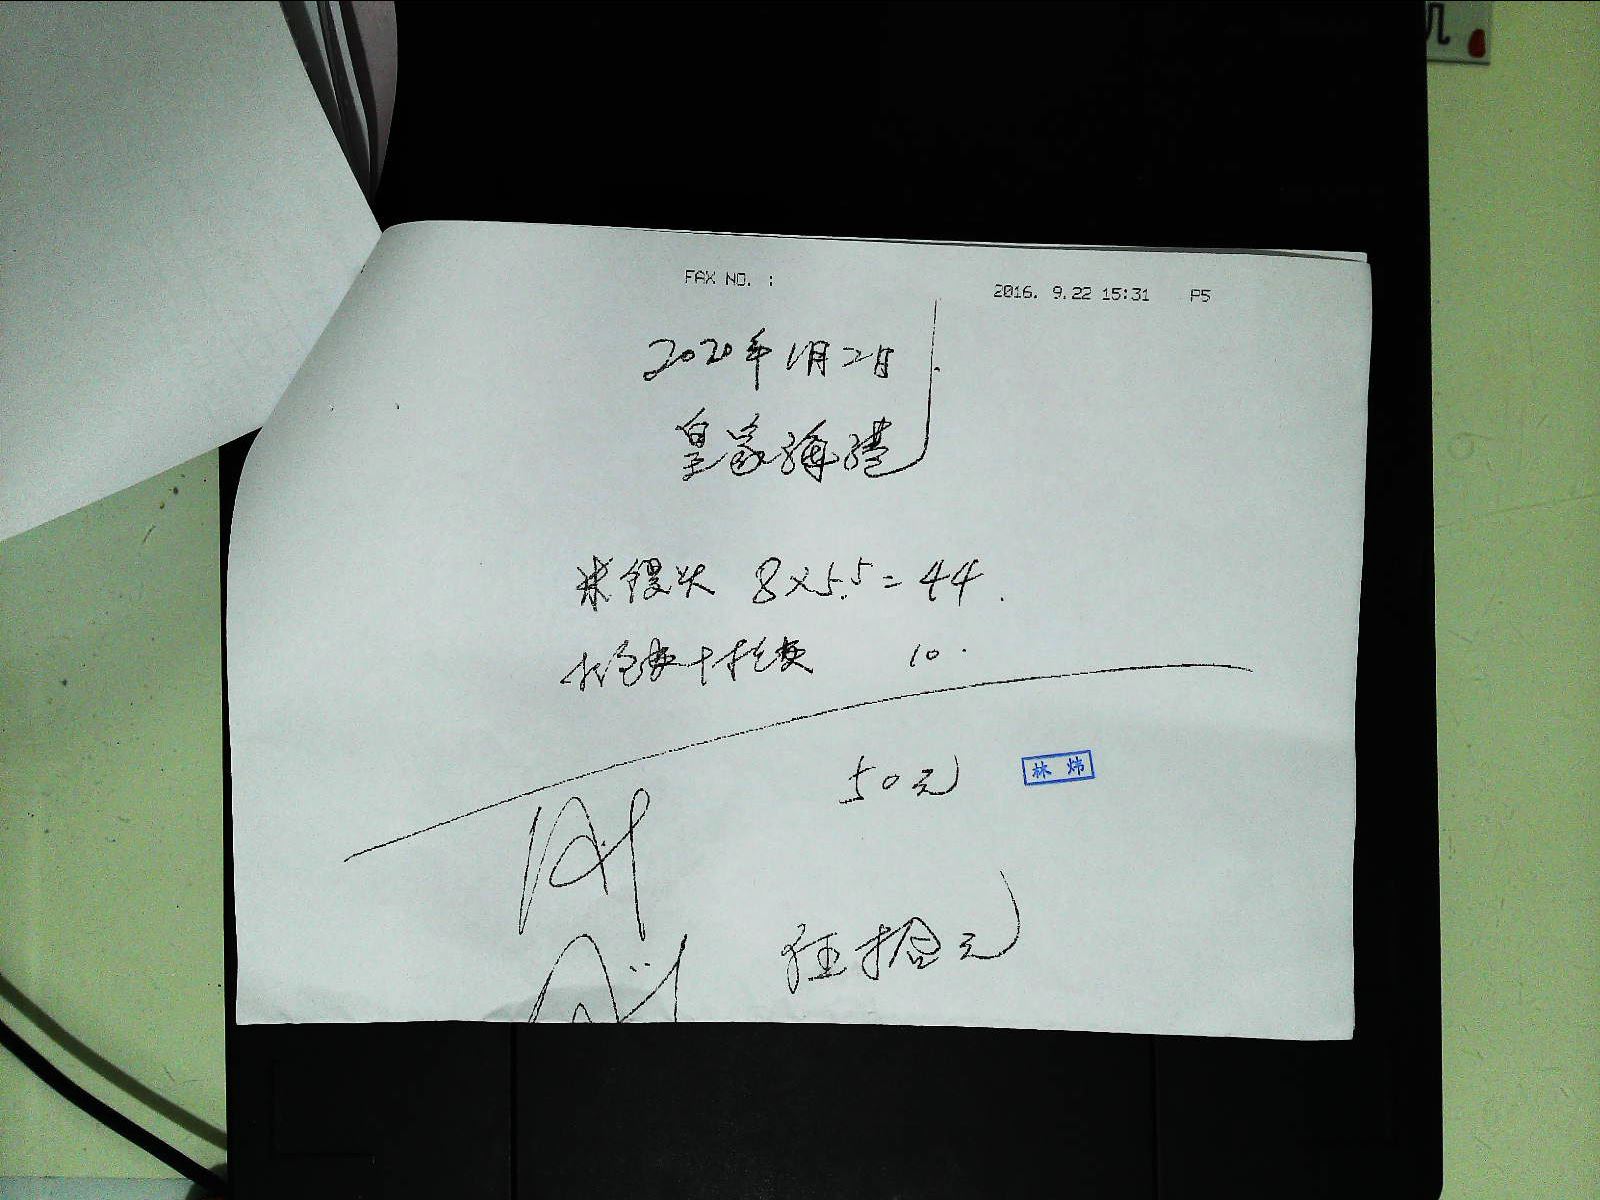 FAX NO. : 2016. 9.22 15:31 P5
2020年1月2日
皇家海港
米馒头 8×5.5=44.
10.
50元
林炜
拾元